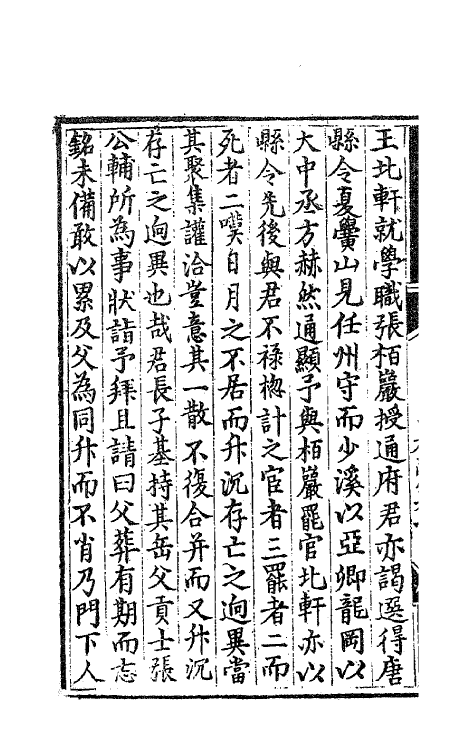 王北軒就學職張栢巖授通府君亦謁選得唐
縣令夏黌山見任州守而少溪以亞卿龍岡以
大中丞方赫然通顯予與栢巖罷官北軒亦以
縣令先後與君不祿揔計之宦者三罷者二而
死者二嘆日月之不居而升沉存亡之逈異當
其聚集讙洽豈意其一散不復合并而又升沉
存亡之逈異也哉君長子基持其岳父貢士張
公輔所為事狀詣予拜且請曰父葬有期而志
銘未備敢以累及父為同升而不肖乃門下人